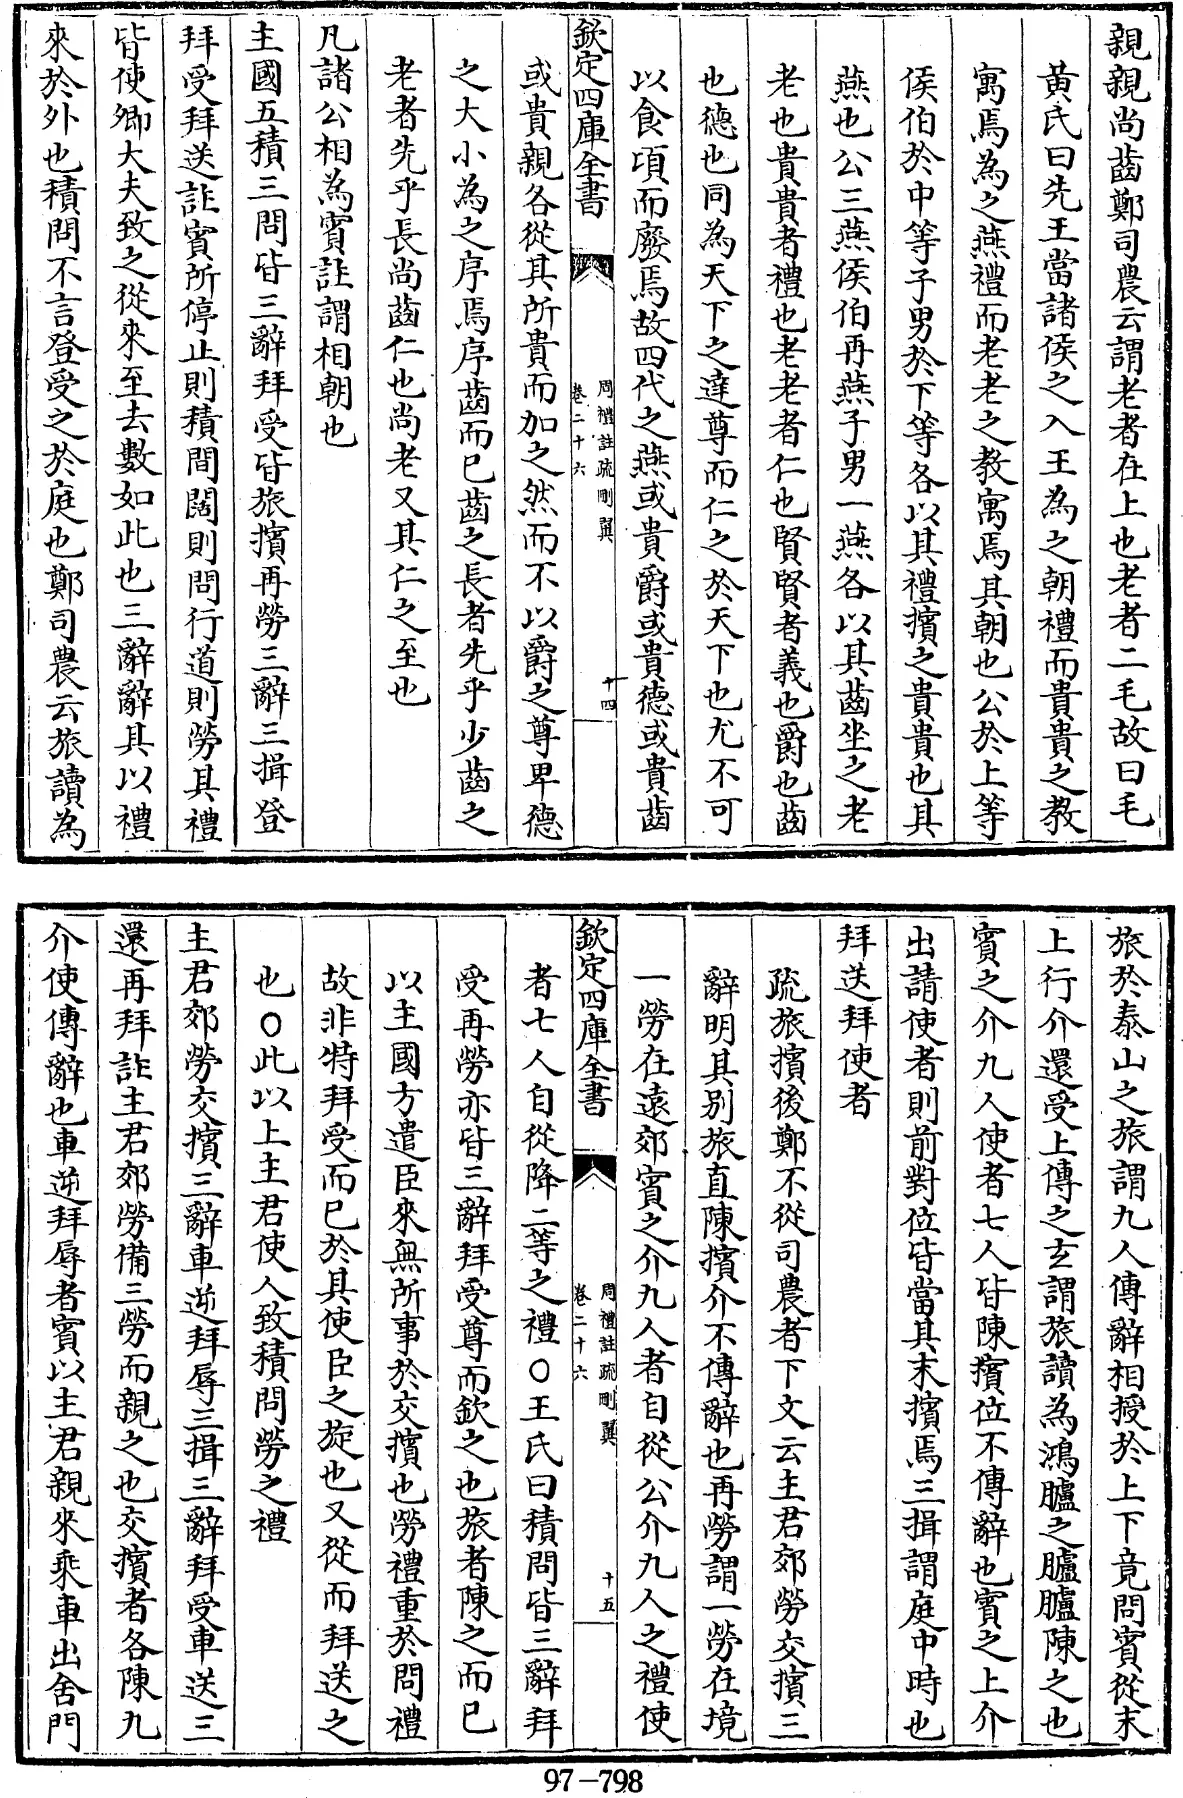 親親尚齒鄭司農云謂老者在上也老者二毛故曰毛
黄氏曰先王當諸侯之入王為之朝禮而貴貴之教
寓焉為之燕禮而老老之教寓焉其朝也公於上等
侯伯於中等子男於下等各以其禮擯之貴貴也其
燕也公三燕侯伯再燕子男一燕各以其齒坐之老
老也貴貴者禮也老老者仁也賢賢者義也爵也齒
也德也同為天下之達尊而仁之於天下也尤不可
以食頃而廢焉故四代之燕或貴爵或貴德或貴齒
欽定四庫全書
周禮註疏刪翼
卷二十六
十四
或貴親各從其所貴而加之然而不以爵之尊卑德
之大小為之序焉序齒而已齒之長者先乎少齒之
老者先乎長尚齒仁也尚老又其仁之至也
凡諸公相為賓註謂相朝也
主國五積三問皆三辭拜受皆旅擯再勞三辭三揖登
拜受拜送註賓所停止則積間闊則問行道則勞其禮
皆使卿大夫致之從來至去數如此也三辭辭其以禮
來於外也積問不言登受之於庭也鄭司農云旅讀為
旅於泰山之旅謂九人傳辭相授於上下竟問賓從末
上行介還受上傳之玄謂旅讀為鴻臚之臚臚陳之也
賓之介九人使者七人皆陳擯位不傳辭也賓之上介
出請使者則前對位皆當其末擯焉三揖謂庭中時也
拜送拜使者
疏旅擯後鄭不從司農者下文云主君郊勞交擯三
辭明其別旅直陳擯介不傳辭也再勞謂一勞在境
一勞在遠郊賓之介九人者自從公介九人之禮使
欽定四庫全書
周禮註疏刪翼
卷二十六
十五
者七人自從降二等之禮○王氏曰積問皆三辭拜
受再勞亦皆三辭拜受尊而欽之也旅者陳之而已
以主國方遣臣來無所事於交擯也勞禮重於問禮
故非特拜受而已於其使臣之旋也又從而拜送之
也○此以上主君使人致積問勞之禮
主君郊勞交擯三辭車逆拜辱三揖三辭拜受車送三
還再拜註主君郊勞備三勞而親之也交擯者各陳九
介使傳辭也車逆拜辱者賓以主君親來乘車出舍門
97-798